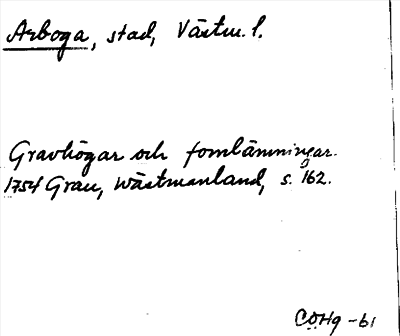 Arboga, stad, Västm. l.
Gravhögar och fornlämningar.
1754 Grau, Wästmanland, s. 162.
CÖHg -61